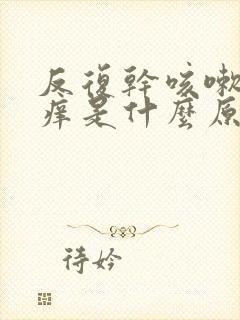 反復幹咳嗽
痒是什麼原
待妗